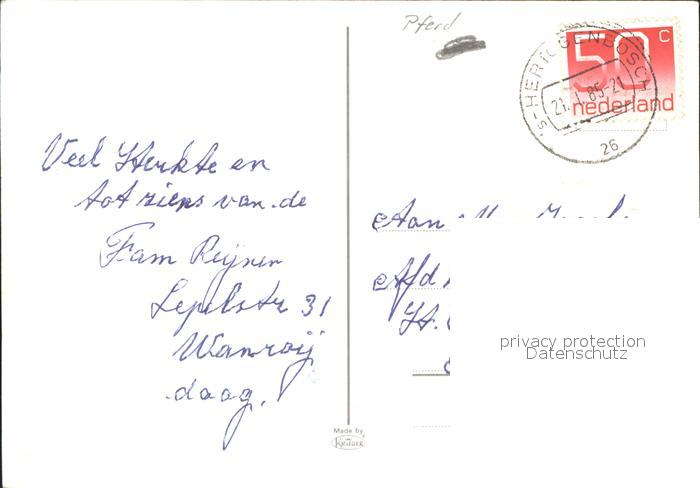 Pferd
50 c
nederland
's-HERTOGENBOSCH
21.1.85-21
26
Veel Sterkte en
tot ziens van de
Fam Reijnen
Lepelstr 31
Wanroij
daag.
Aan
Afd
St.
privacy protection
Datenschutz
Made by
KRÜGER